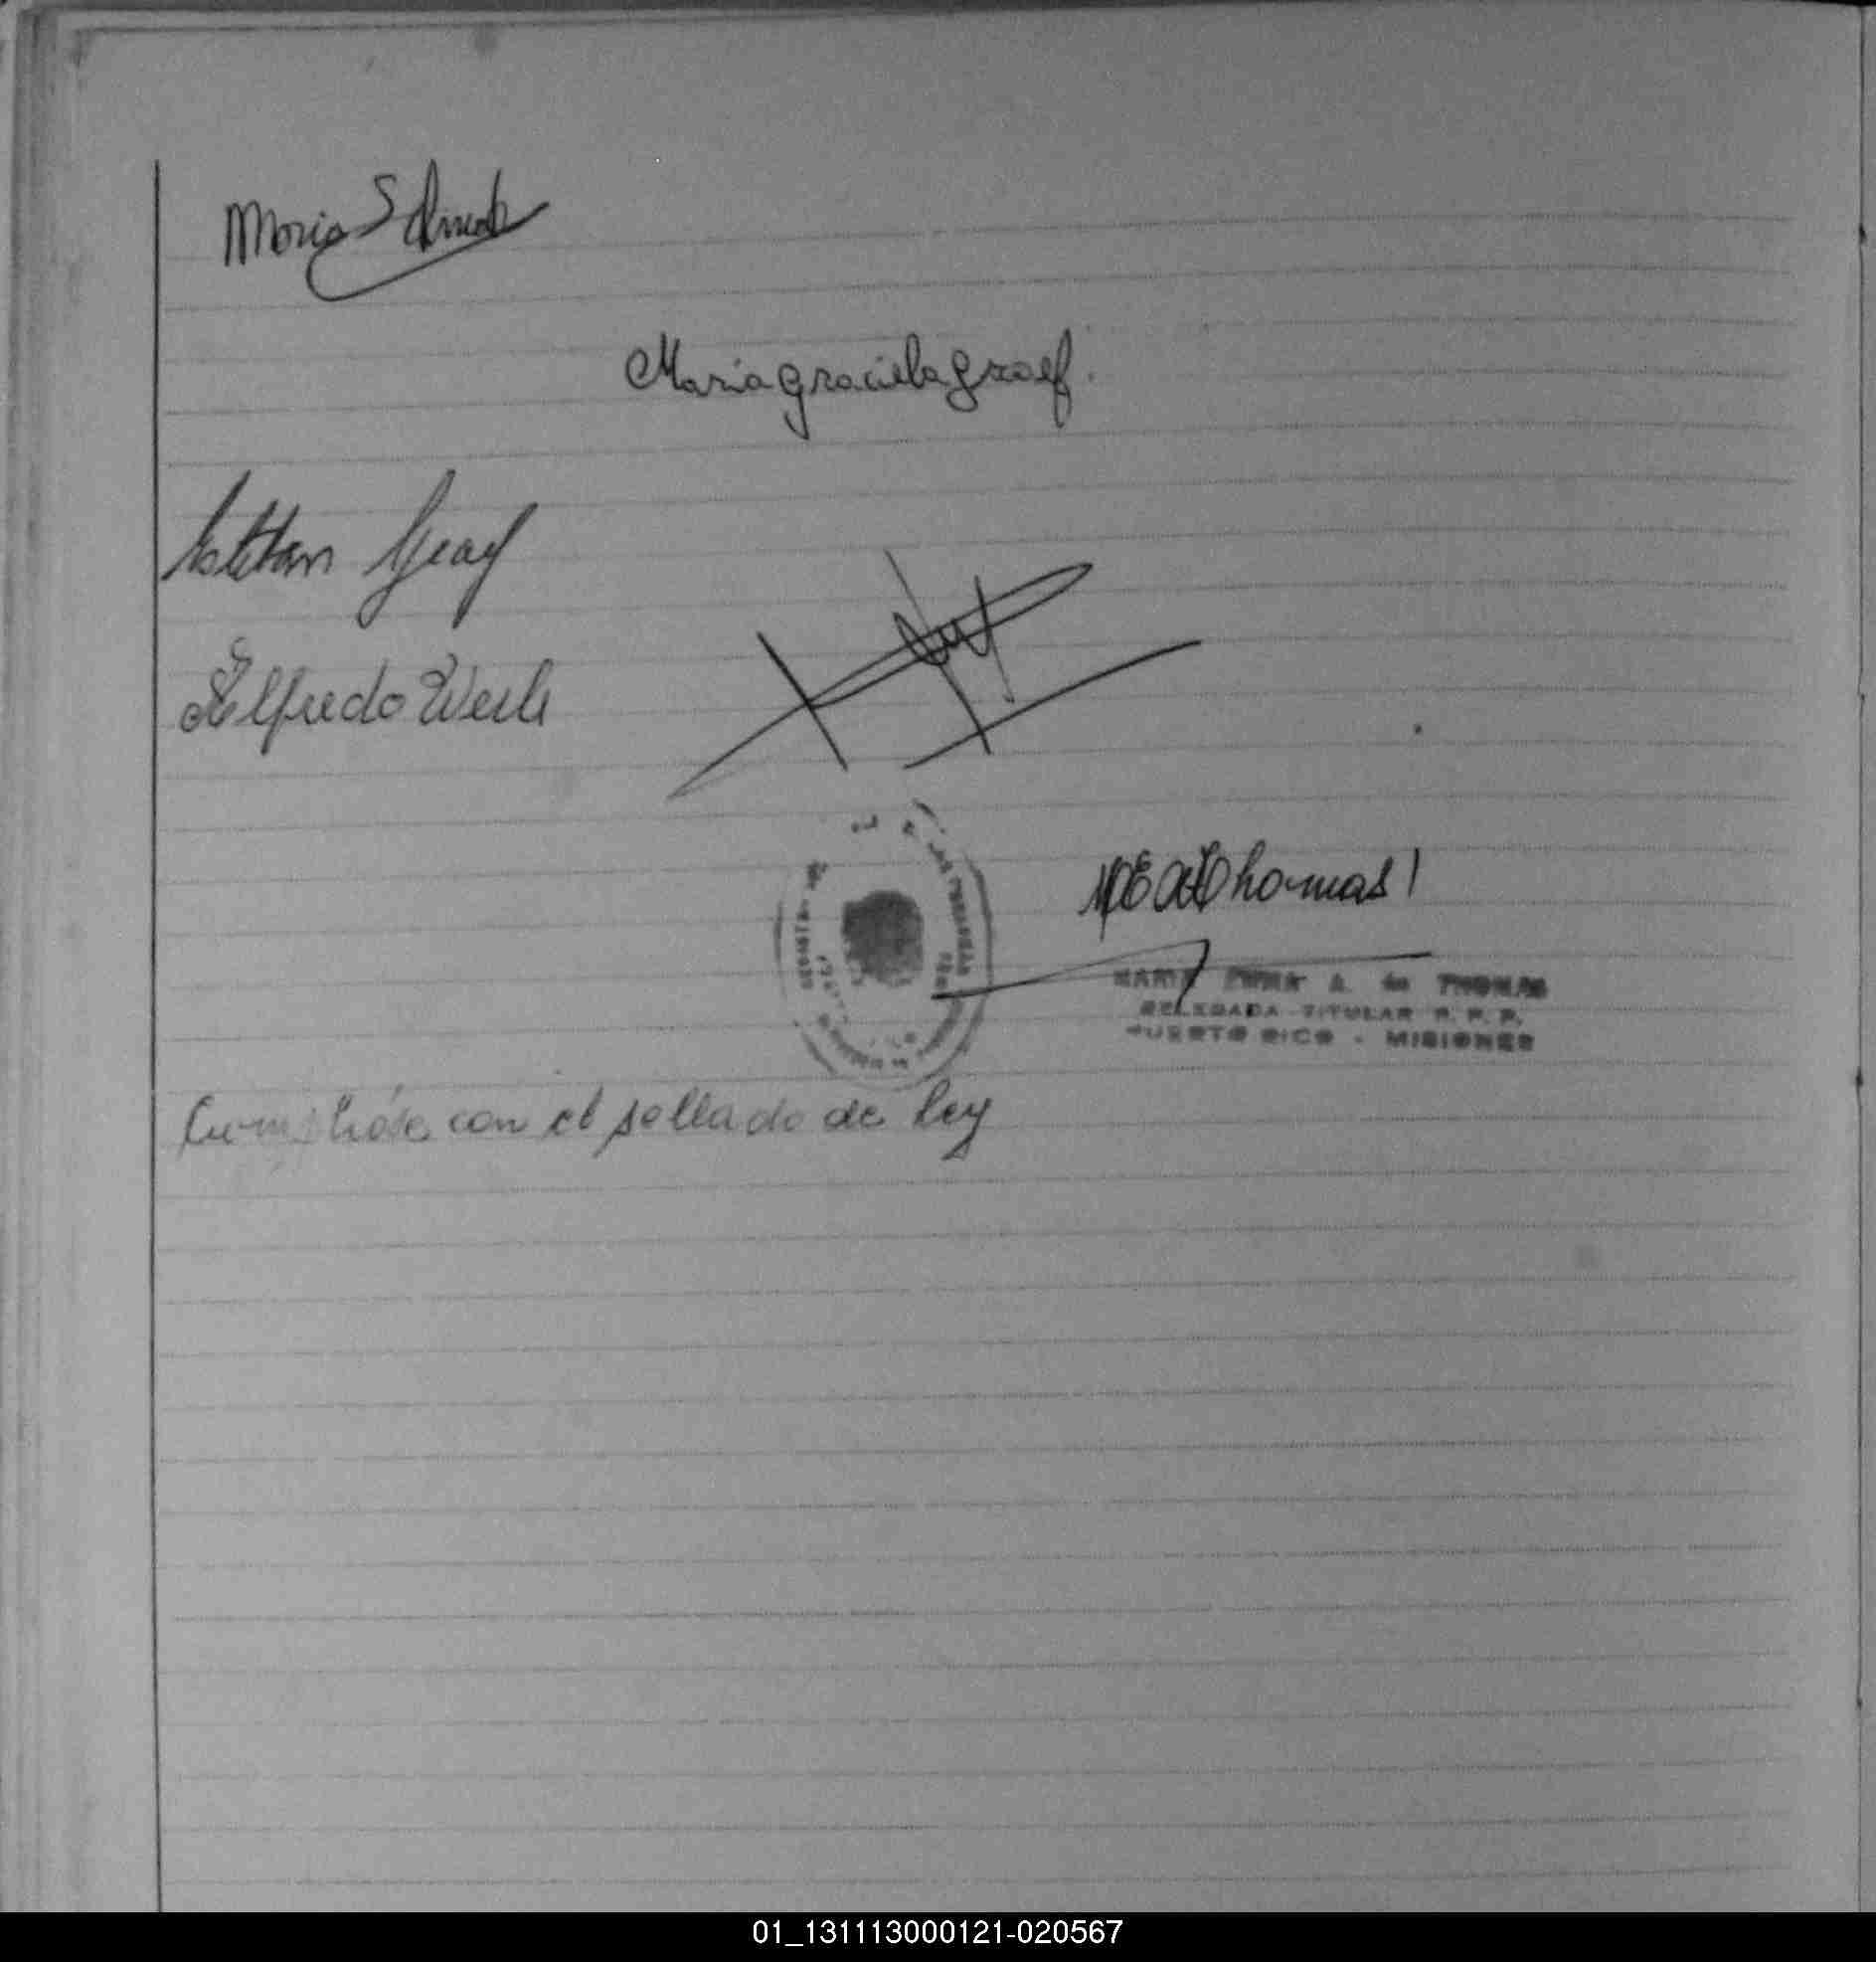 Maria S
Maria Graciela Graef.
Esteban Graef
Alfredo Werle
MEA Thomas
MARIA EMMA A. de THOMAS
DELEGADA TITULAR R. P. P.
PUERTO RICO - MISIONES
Cumplióse con el sellado de ley
01_131113000121-020567